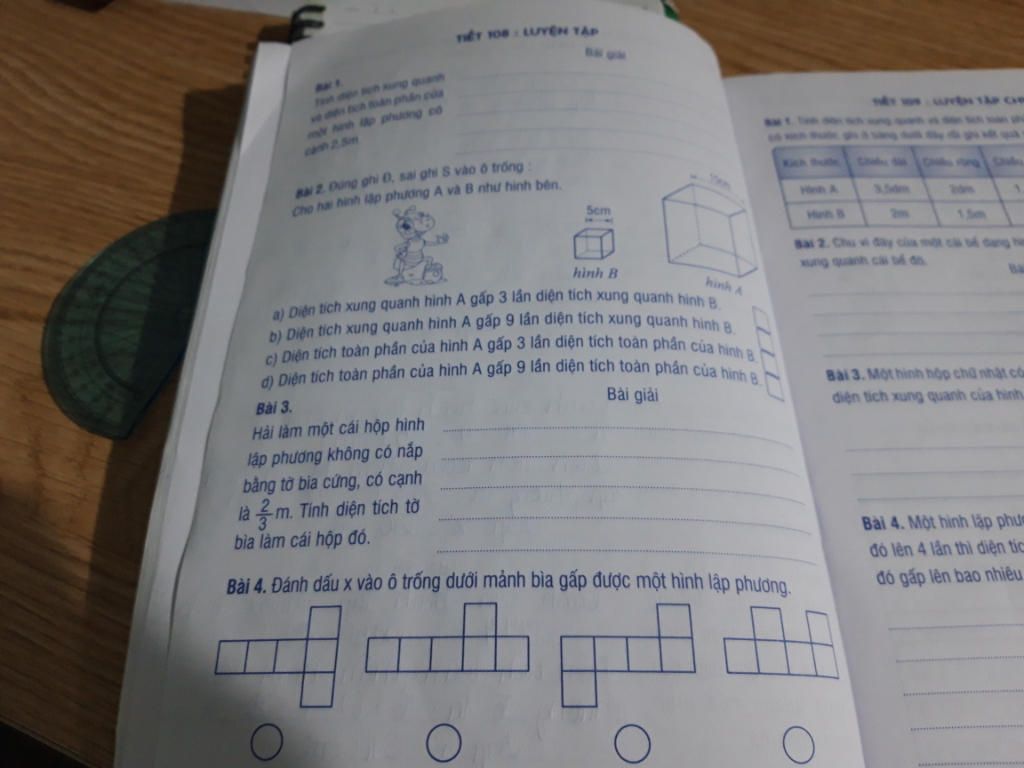 TIẾT 108 : LUYỆN TẬP
Bài giải
Bài 1.
Tính diện tích xung quanh
và diện tích toàn phần của
một hình lập phương có
cạnh 2,5m
Bài 2. Đúng ghi Đ, sai ghi S vào ô trống :
Cho hai hình lập phương A và B như hình bên.
5cm
15cm
hình B
hình A
a) Diện tích xung quanh hình A gấp 3 lần diện tích xung quanh hình B.
b) Diện tích xung quanh hình A gấp 9 lần diện tích xung quanh hình B.
c) Diện tích toàn phần của hình A gấp 3 lần diện tích toàn phần của hình B.
d) Diện tích toàn phần của hình A gấp 9 lần diện tích toàn phần của hình B.
Bài 3.
Bài giải
Hải làm một cái hộp hình
lập phương không có nắp
bằng tờ bìa cứng, có cạnh
là 2/3 m. Tính diện tích tờ
bìa làm cái hộp đó.
Bài 4. Đánh dấu x vào ô trống dưới mảnh bìa gấp được một hình lập phương.
TIẾT 109 : LUYỆN TẬP
Bài 1. Tính diện tích xung quanh và diện tích toàn
có kích thước ghi ở bảng dưới đây rồi ghi kết quả
Kích thước Chiều dài Chiều rộng Chiều
Hình A 3,5dm 2dm 1
Hình B 2m 1,5m
Bài 2. Chu vi đáy của một cái bể dạng
xung quanh cái bể đó.
Bài 3. Một hình hộp chữ nhật có
diện tích xung quanh của hình
Bài 4. Một hình lập
đó lên 4 lần thì diện
đó gấp lên bao nhiêu